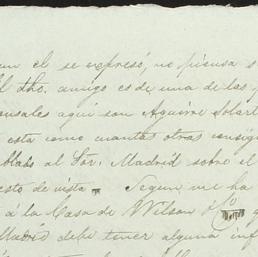 un el se expresó, no piensa s
El dho. amigo es de una de las p
onsales aqui son Aguirre Solart
esta como cuantas otras consig
blado al Sor. Madrid sobre el
esto de vista Segun me ha
á la Casa de Wilson H
Madrid debe tener alguna inf